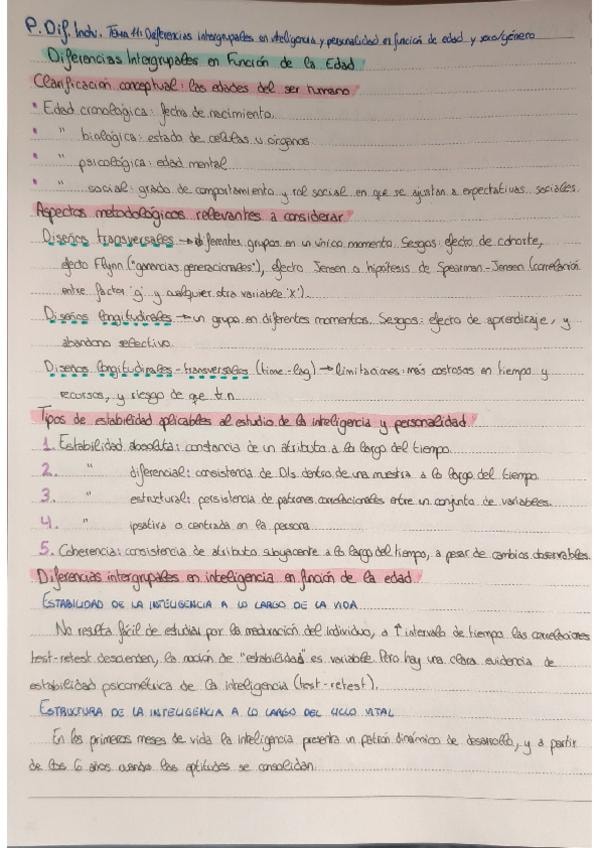 P. Dif. Indv. Tema 11: Diferencias intergrupales en inteligencia y personalidad en función de edad y sexo/género
Diferencias Intergrupales en Función de la Edad
Clarificación conceptual: las edades del ser humano
• Edad cronológica: fecha de nacimiento.
• " biológica: estado de células u órganos
• " psicológica: edad mental
• " social: grado de comportamiento y rol social en que se ajustan a expectativas sociales.
Aspectos metodológicos relevantes a considerar
Diseños transversales → diferentes grupos en un único momento. Sesgos: efecto de cohorte,
efecto Flynn ("ganancias generacionales"), efecto Jensen o hipótesis de Spearman-Jensen (correlación
entre factor 'g' y cualquier otra variable 'x').
Diseños longitudinales → un grupo en diferentes momentos. Sesgos: efecto de aprendizaje, y
abandono selectivo
Diseños longitudinales-transversales (time-lag) → limitaciones: más costosas en tiempo y
recursos, y riesgo de que
Tipos de estabilidad aplicables al estudio de la inteligencia y personalidad
1. Estabilidad absoluta: constancia de un atributo a lo largo del tiempo.
2. " diferencial: consistencia de DIs dentro de una muestra a lo largo del tiempo
3. " estructural: persistencia de patrones correlacionales entre un conjunto de variables.
4. " ipsativa o centrada en la persona
5. Coherencia: consistencia de atributo subyacente a lo largo del tiempo, a pesar de cambios observables.
Diferencias intergrupales en inteligencia en función de la edad
ESTABILIDAD DE LA INTELIGENCIA A LO LARGO DE LA VIDA
No resulta fácil de estudiar por la maduración del individuo, a ↑ intervalo de tiempo las correlaciones
test-retest descienden, la noción de "estabilidad" es variable. Pero hay una clara evidencia de
estabilidad psicométrica de la inteligencia (test-retest).
ESTRUCTURA DE LA INTELIGENCIA A LO LARGO DEL CICLO VITAL
En los primeros meses de vida la inteligencia presenta un patrón dinámico de desarrollo, y a partir
de los 6 años cuando las aptitudes se consolidan.